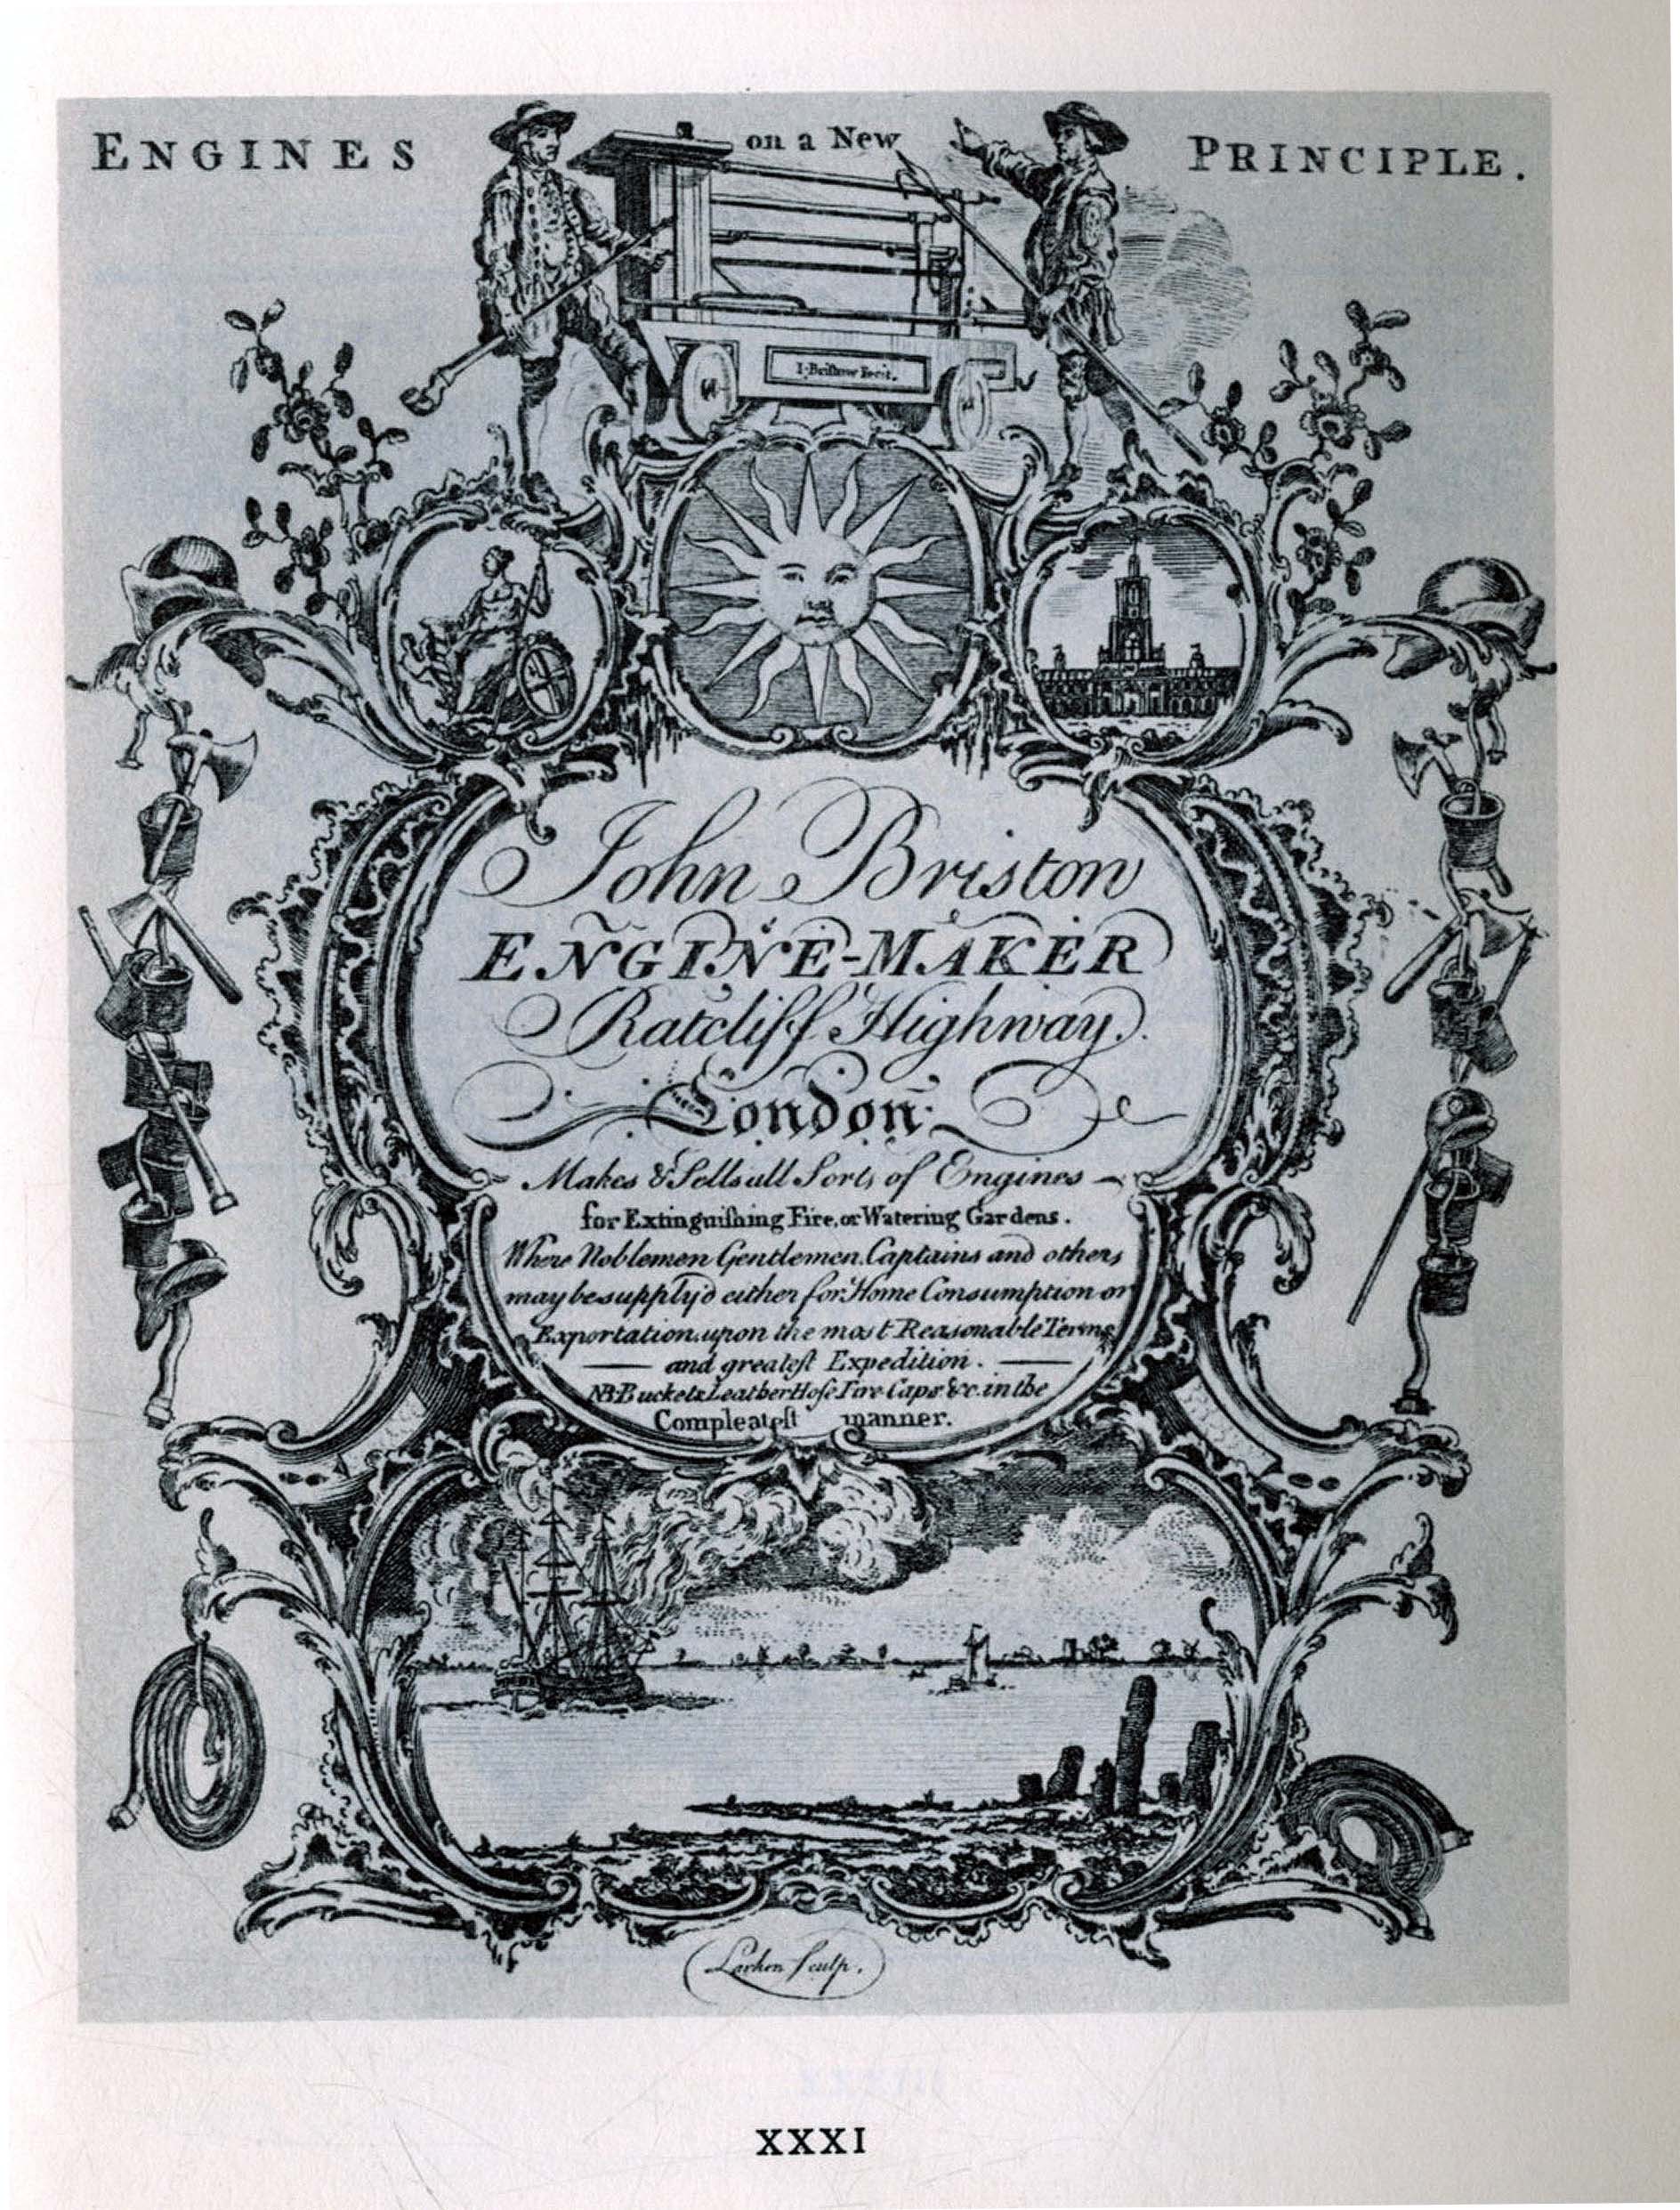 ENGINES on a New PRINCIPLE.
I. Briſtow Fecit.
John Bristow
ENGINE-MAKER
Ratcliff Highway.
London.
Makes & Sells all Sorts of Engines
for Extinguiſhing Fire, or Watering Gardens.
Where Noblemen Gentlemen Captains and others
may be supply'd either for Home Consumption or
Exportation upon the most Reasonable Terms
and greateſt Expedition.
NB. Buckets Leather Hoſe Fire Caps &c. in the
Compleateſt manner.
Larken Sculp.
XXXI